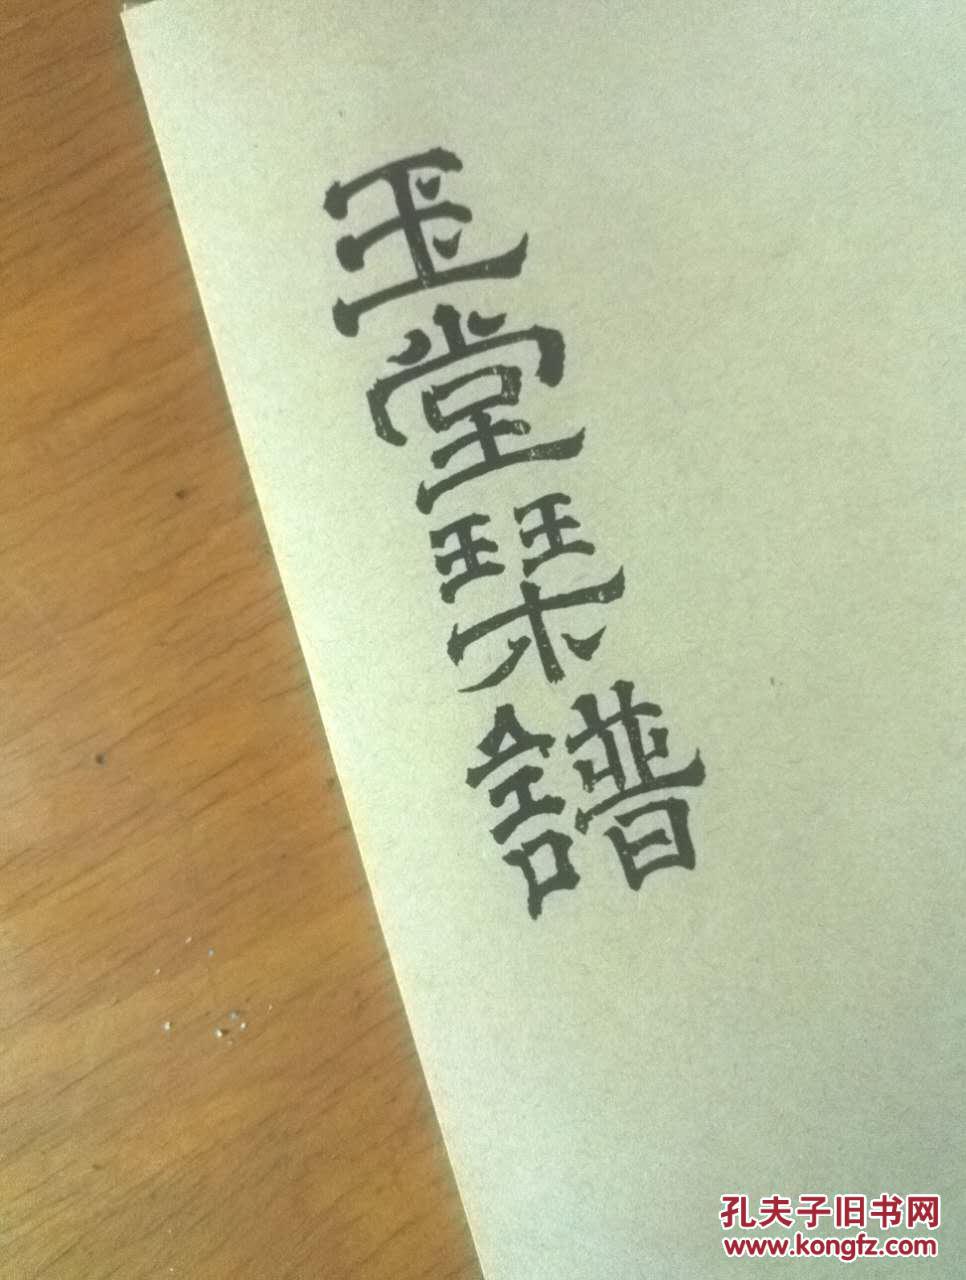 玉堂琹譜
孔夫子旧书网
www.kongfz.com